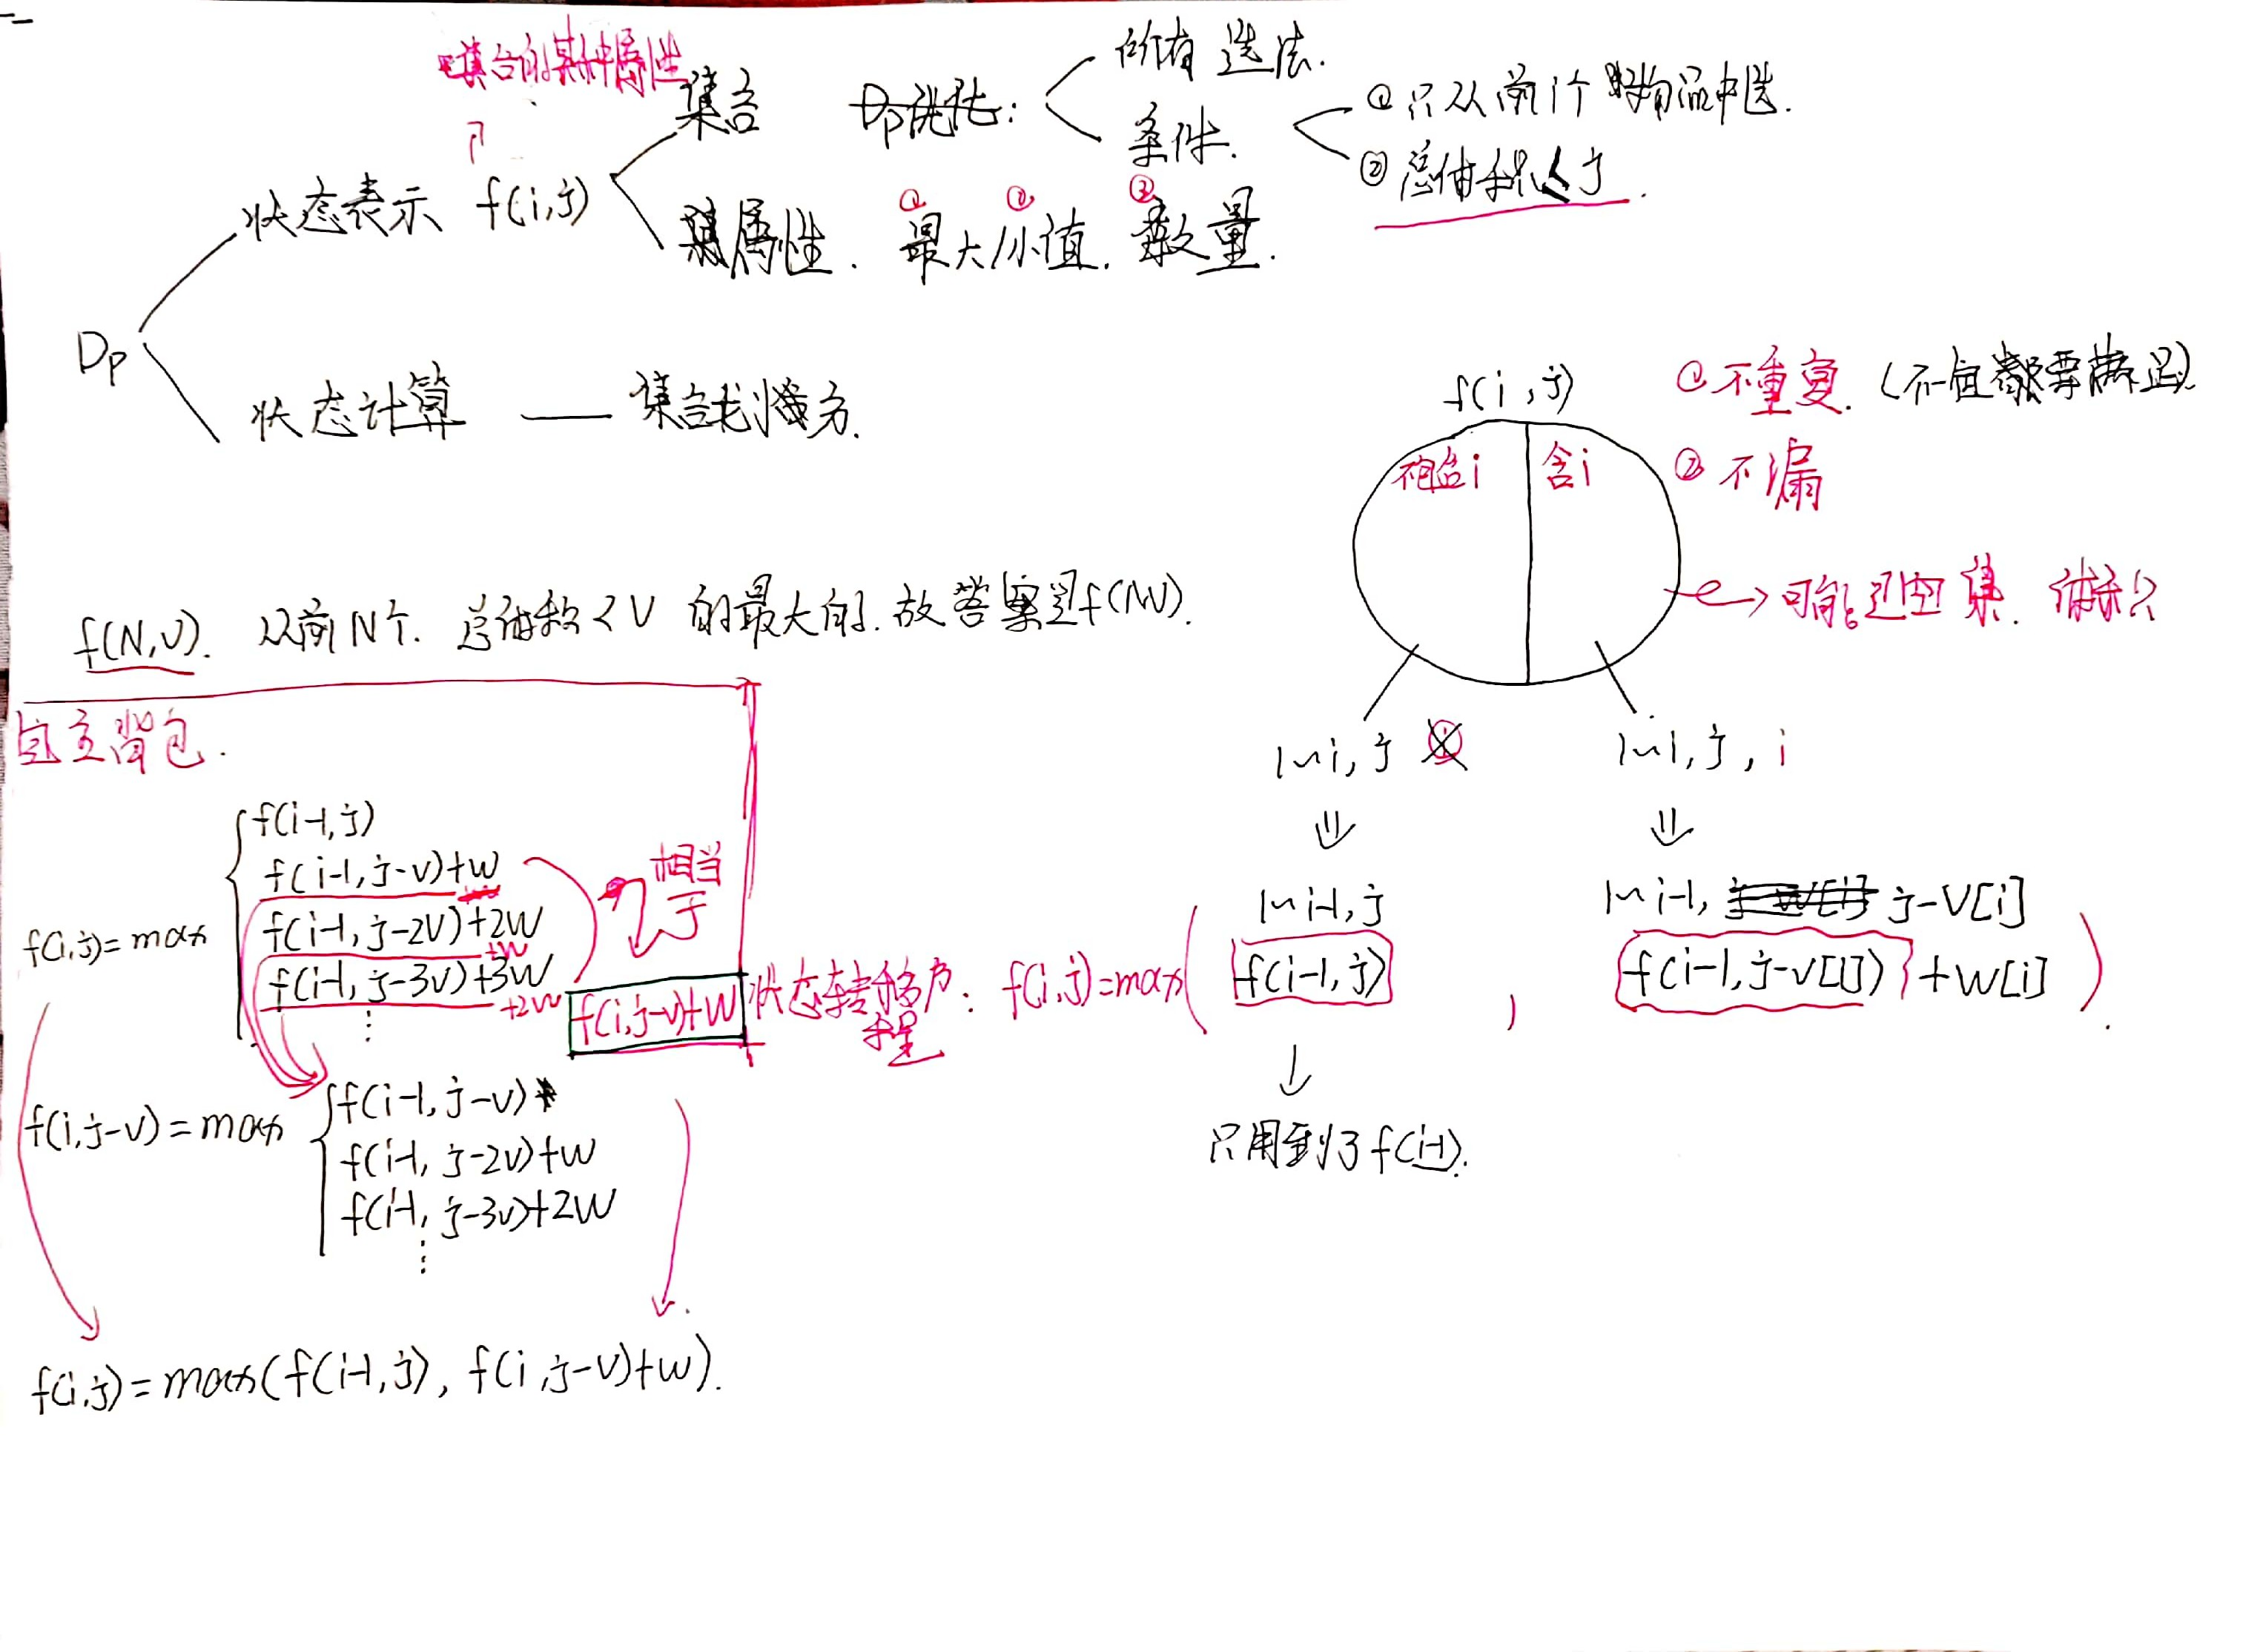 集合的某种属性
集合
所有选法.
条件.
① 只从前i个物品中选.
② 总体积≤j.
状态表示 f(i,j)
属性. ① 最大/② 小值. ③ 数量.
Dp
状态计算 —— 集合划分.
f(i,j)
① 不重复. (不一定都要满足).
② 不漏
不包含i
含i
→ 可能是空集.
f(N,V). 从前N个. 总体积<V 的最大的. 故答案是f(N,V).
背包.
1~i, j
1~i, j, i
⇓ ⇓
1~i-1, j
1~i-1, j-V[i]
状态转移方程: f(i,j)=max( f(i-1,j) , f(i-1,j-v[i]) + w[i] ).
↓
只用到了f(i-1).
f(i,j)=max
f(i-1,j)
f(i-1,j-v)+w
f(i-1,j-2v)+2w
+w
f(i-1,j-3v)+3w
+2w
⋮
相当于
f(i,j-v)+w
f(i,j-v)=max
f(i-1,j-v)
f(i-1,j-2v)+w
f(i-1,j-3v)+2w
⋮
f(i,j)=max(f(i-1,j), f(i,j-v)+w).